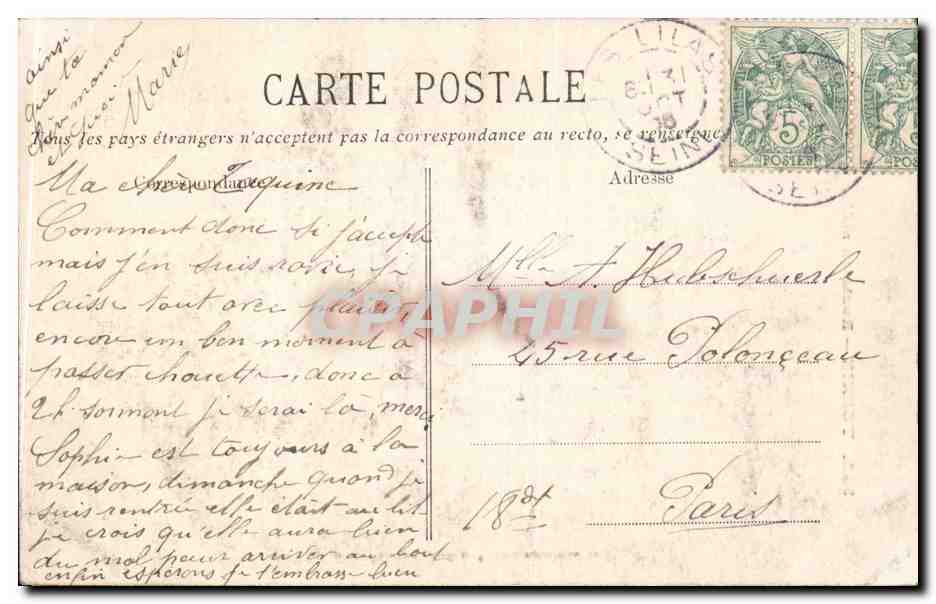 CARTE POSTALE
Tous les pays étrangers n'acceptent pas la correspondance au recto, se renseigne
Correspondance
Adresse
LILAS
SEINE
5c
POSTES
Ma chère Zéquine
Comment donc si j'accepte
mais j'en suis ravie, je
laisse tout avec plaisir,
encore un bon moment à
passer chouette, donc à
2h. je serai là, merci
Sophie est toujours à la
maison, dimanche quand je
suis rentrée elle était au lit
je crois qu'elle aura bien
du mal pour arriver au bout
enfin espérons je t'embrasse bien
ainsi
que ta
maman
et
Marie
Mlle A. Hubschwerle
45 rue Polonçeau
Paris
18e
CPAPHIL